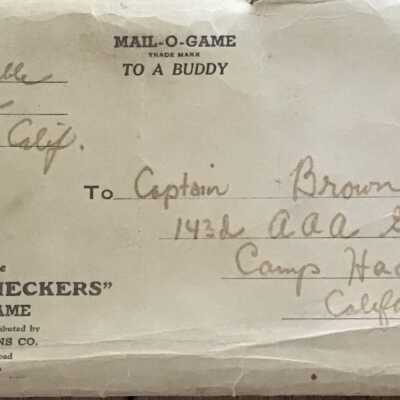 MAIL-O-GAME
TRADE MARK
TO A BUDDY
Calif.
To Captain Brown
143d AAA
Camp
HECKERS"
AME
ributed by
NS CO.
oad